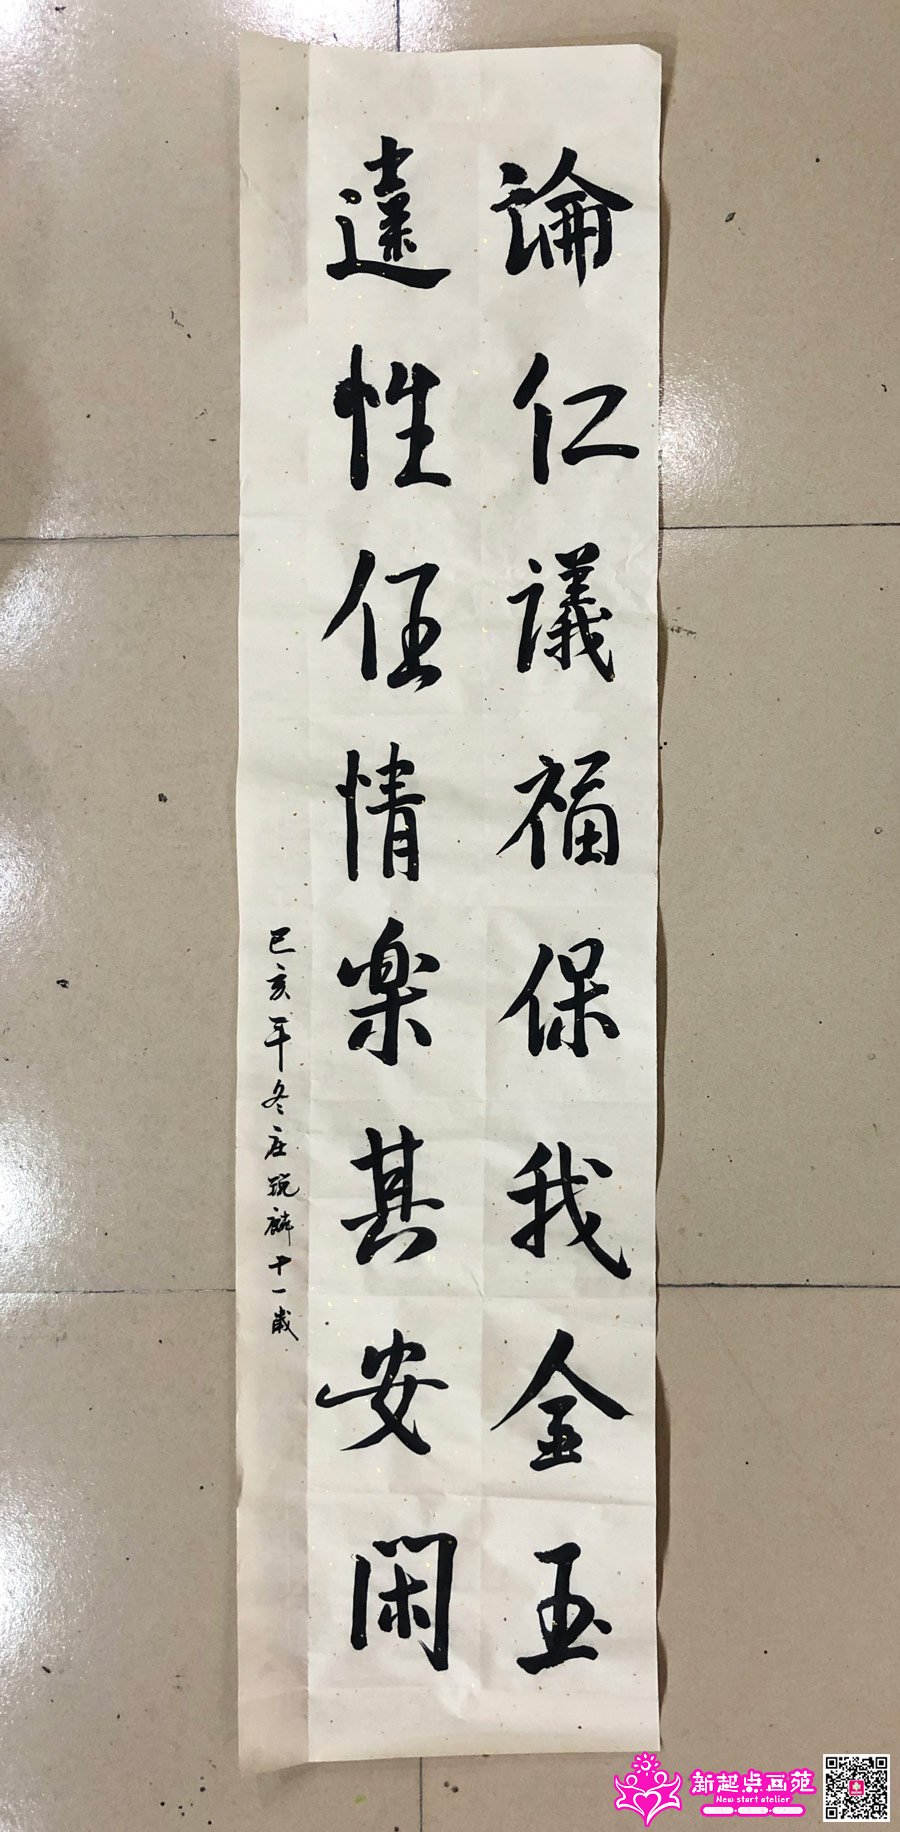 論仁議福保我金玉
遠性任情樂其安閑
己亥年冬庄琬麟十一歲
新起点画苑
New start atelier